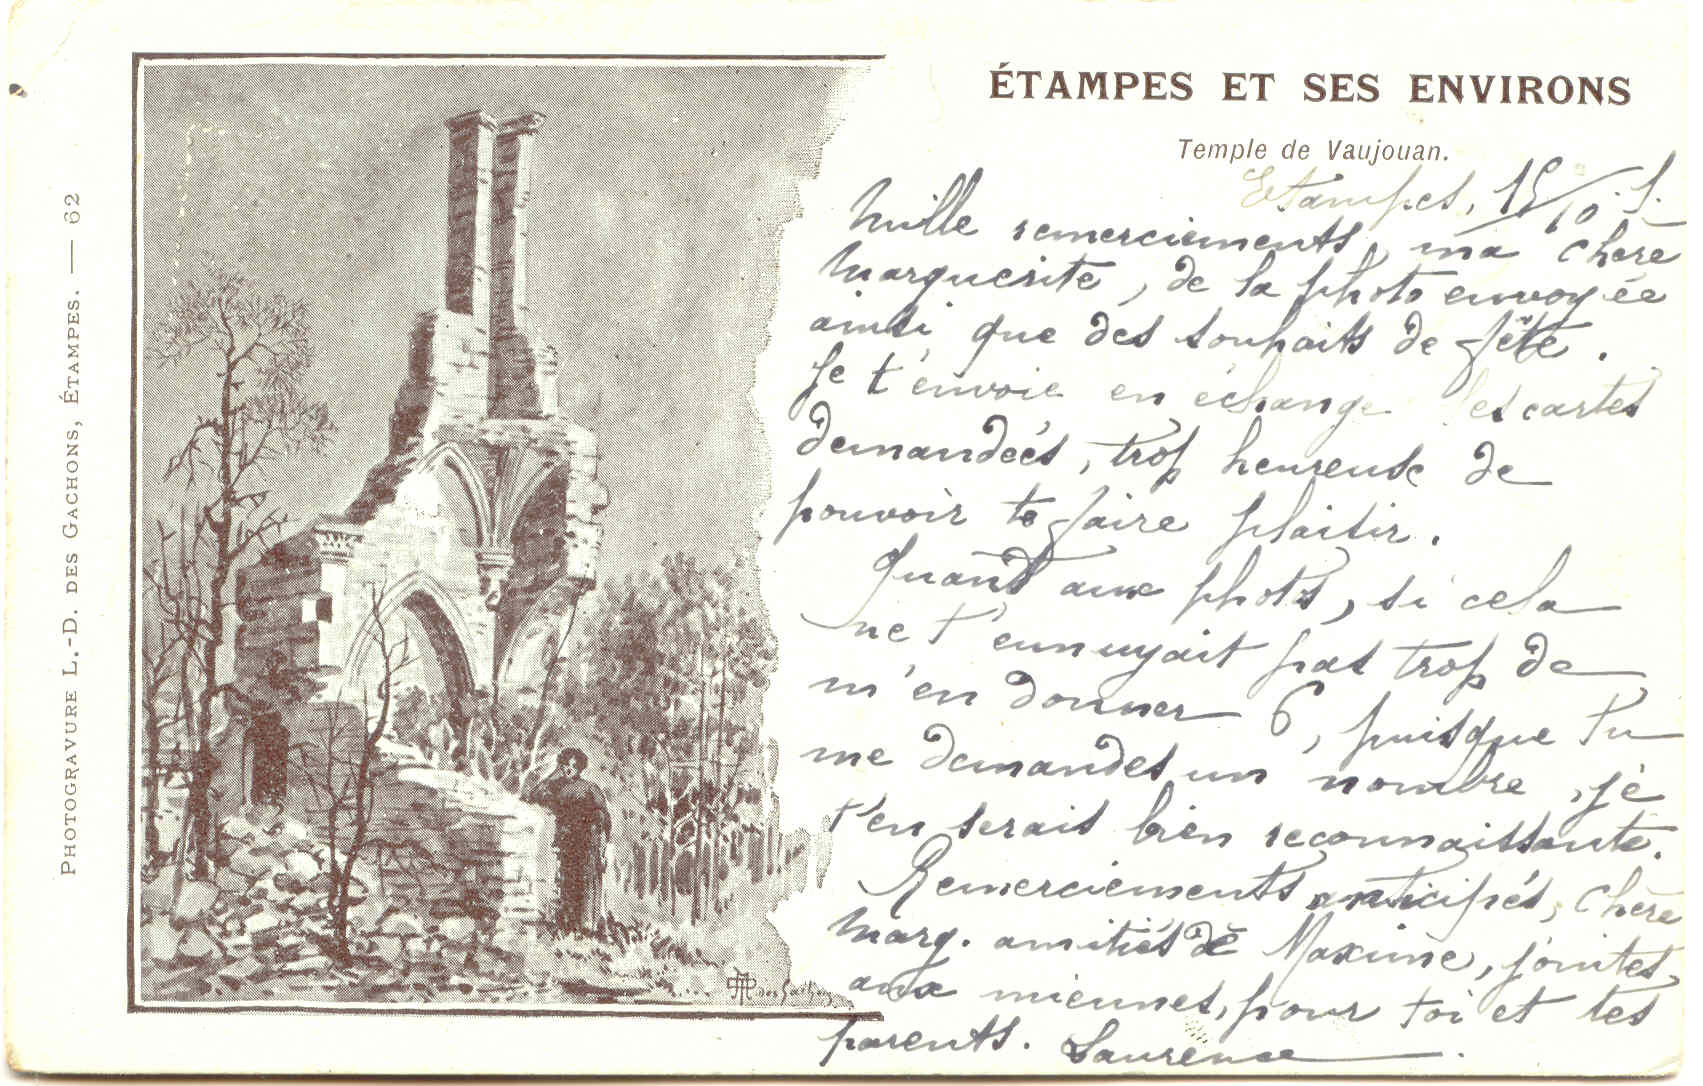 ÉTAMPES ET SES ENVIRONS
Temple de Vaujouan.
Etampes, 15/10.
Mille remerciements, ma chère
Marguerite, de la photo envoyée
ainsi que des souhaits de fête.
Je t'envoie en échange les cartes
demandées, trop heureuse de
pouvoir te faire plaisir.
Quant aux photos, si cela
ne t'ennuyait pas trop de
m'en donner 6, puisque tu
me demandes un nombre, je
t'en serais bien reconnaissante.
Remerciements anticipés, chère
Marg. amitiés de Maxime, jointes
aux miennes, pour toi et tes
parents. Laurence.
PHOTOGRAVURE L.-D. DES GACHONS, ÉTAMPES. — 62
des Gachons